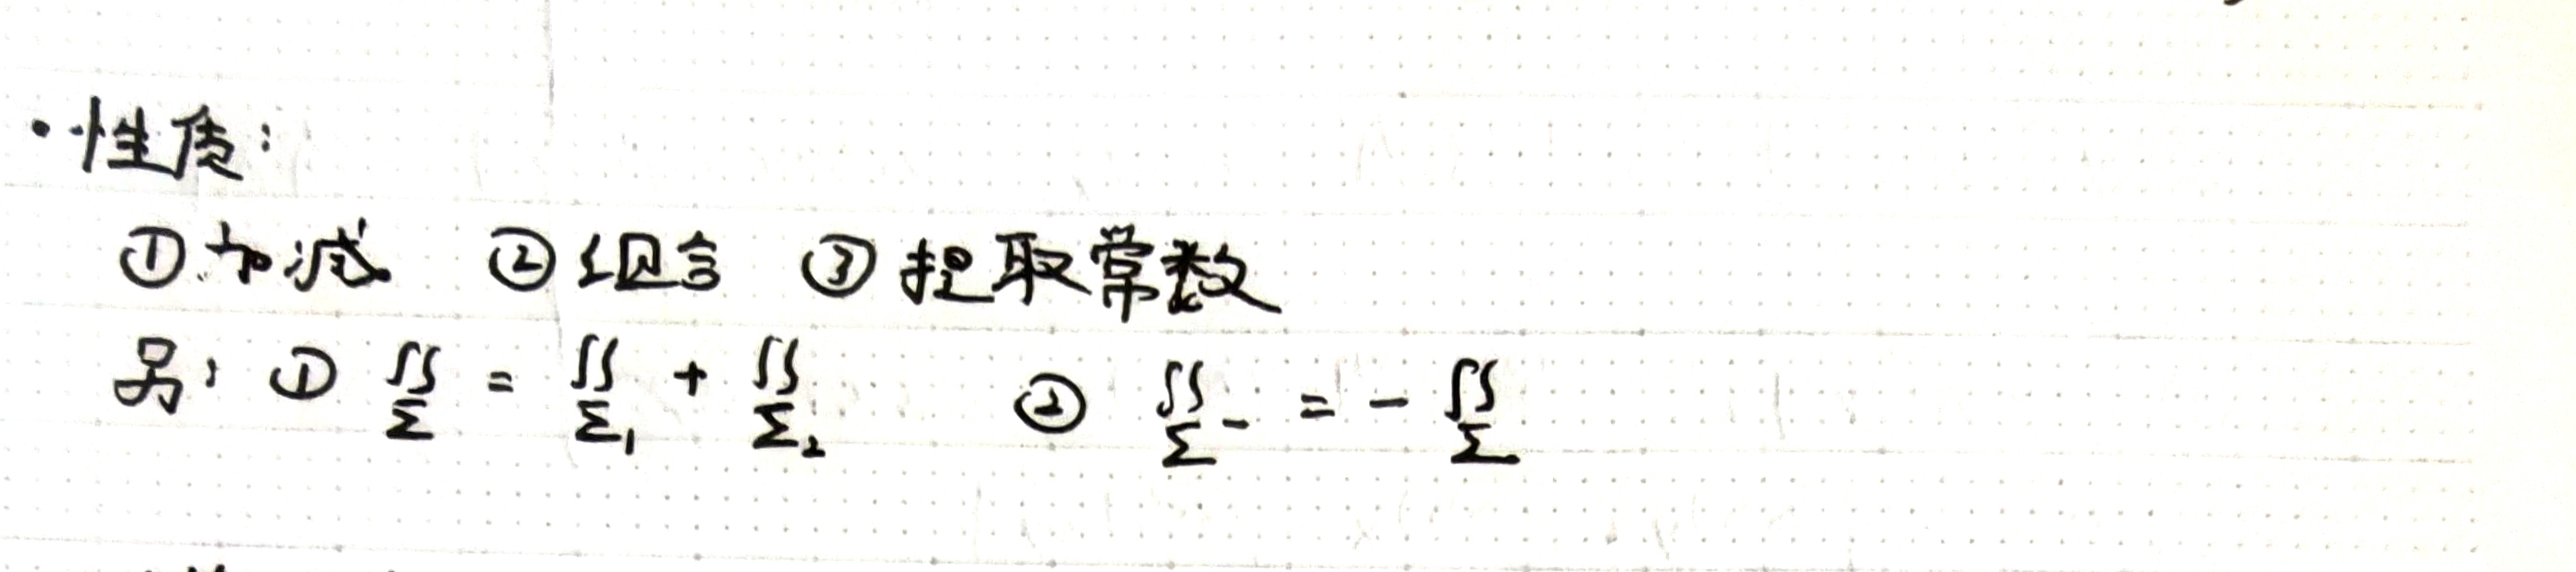 ·性质:
①加减 ②组合 ③提取常数
另: ① ∬_Σ = ∬_Σ₁ + ∬_Σ₂ ② ∬_Σ⁻ = - ∬_Σ